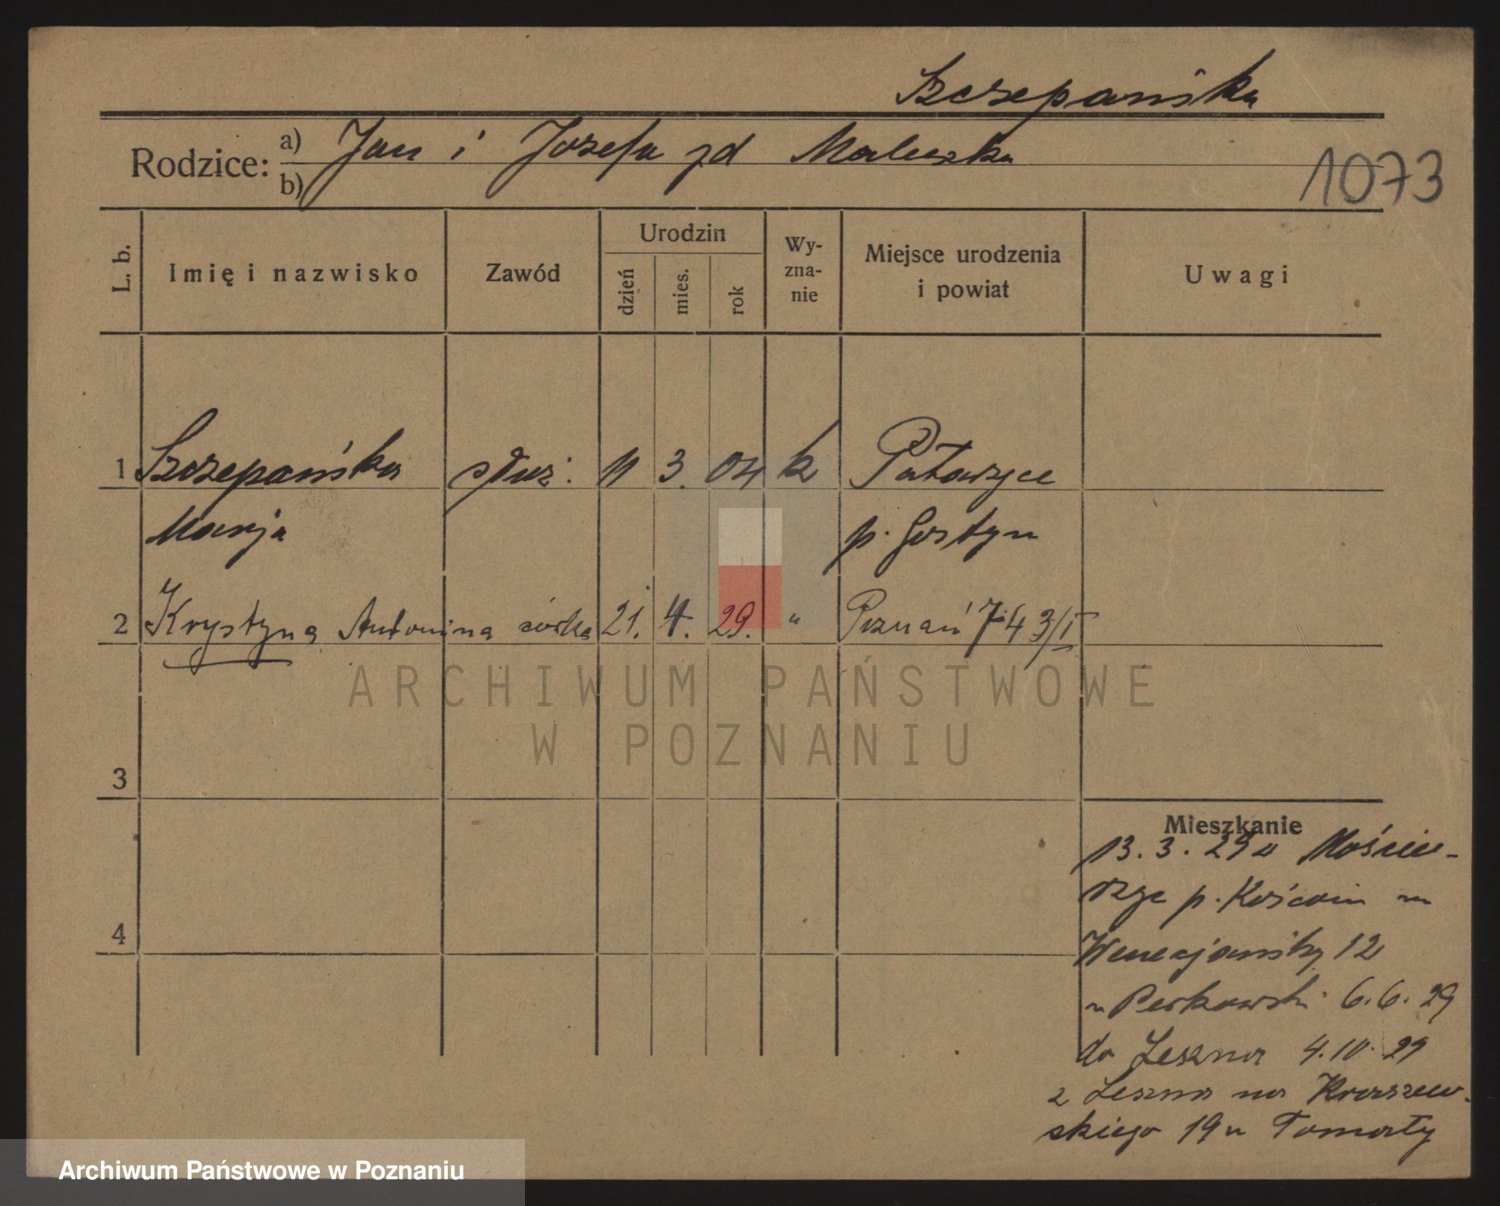 Szczepańska
Rodzice: a) Jan i Józefa zd Maluszka
b)
1073
L. b. Imię i nazwisko Zawód Urodzin dzień mies. rok Wy-zna-nie Miejsce urodzenia i powiat Uwagi
1 Szczepańska służ. 11 3. 04 k Pataszyce
Marja p. Gostyn
2 Krystyna Antonina córka 21. 4. 29. " Poznań 743/I
3
Mieszkanie
13. 3. 29 z Mościs-
4
p. Kościan
Wenecjańska 12
u Perkowski 6. 6. 29
do Leszna 4. 10. 29
z Leszna na Kraszew-
skiego 19 u Tomały
ARCHIWUM PAŃSTWOWE
W POZNANIU
Archiwum Państwowe w Poznaniu